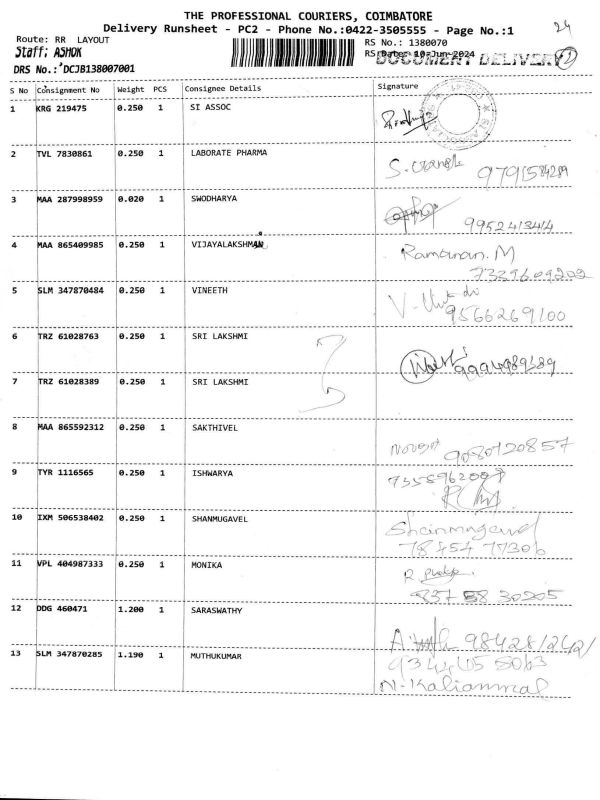 THE PROFESSIONAL COURIERS, COIMBATORE
Delivery Runsheet - PC2 - Phone No.:0422-3505555 - Page No.:1
24
Route: RR LAYOUT
RS No.: 1380070
Staff: ASHOK
RS Date: 10-Jun-2024
DOCUMENT DELIVERY
2
DRS No.: DCJB138007001
S No Consignment No Weight PCS Consignee Details Signature
1 KRG 219475 0.250 1 SI ASSOC
2 TVL 7830861 0.250 1 LABORATE PHARMA
9791584289
3 MAA 287998959 0.020 1 SWODHARYA
9952413414
4 MAA 865409985 0.250 1 VIJAYALAKSHMAN
Ramanan. M
7339609202
5 SLM 347870484 0.250 1 VINEETH
9566269100
6 TRZ 61028763 0.250 1 SRI LAKSHMI
9994989489
7 TRZ 61028389 0.250 1 SRI LAKSHMI
8 MAA 865592312 0.250 1 SAKTHIVEL
9080120857
9 TYR 1116565 0.250 1 ISHWARYA
10 IXM 506538402 0.250 1 SHANMUGAVEL
Shanmugavel
78454 77306
11 VPL 404987333 0.250 1 MONIKA
837 58 30205
12 DDG 460471 1.200 1 SARASWATHY
13 SLM 347870285 1.190 1 MUTHUKUMAR
N-Kaliammal